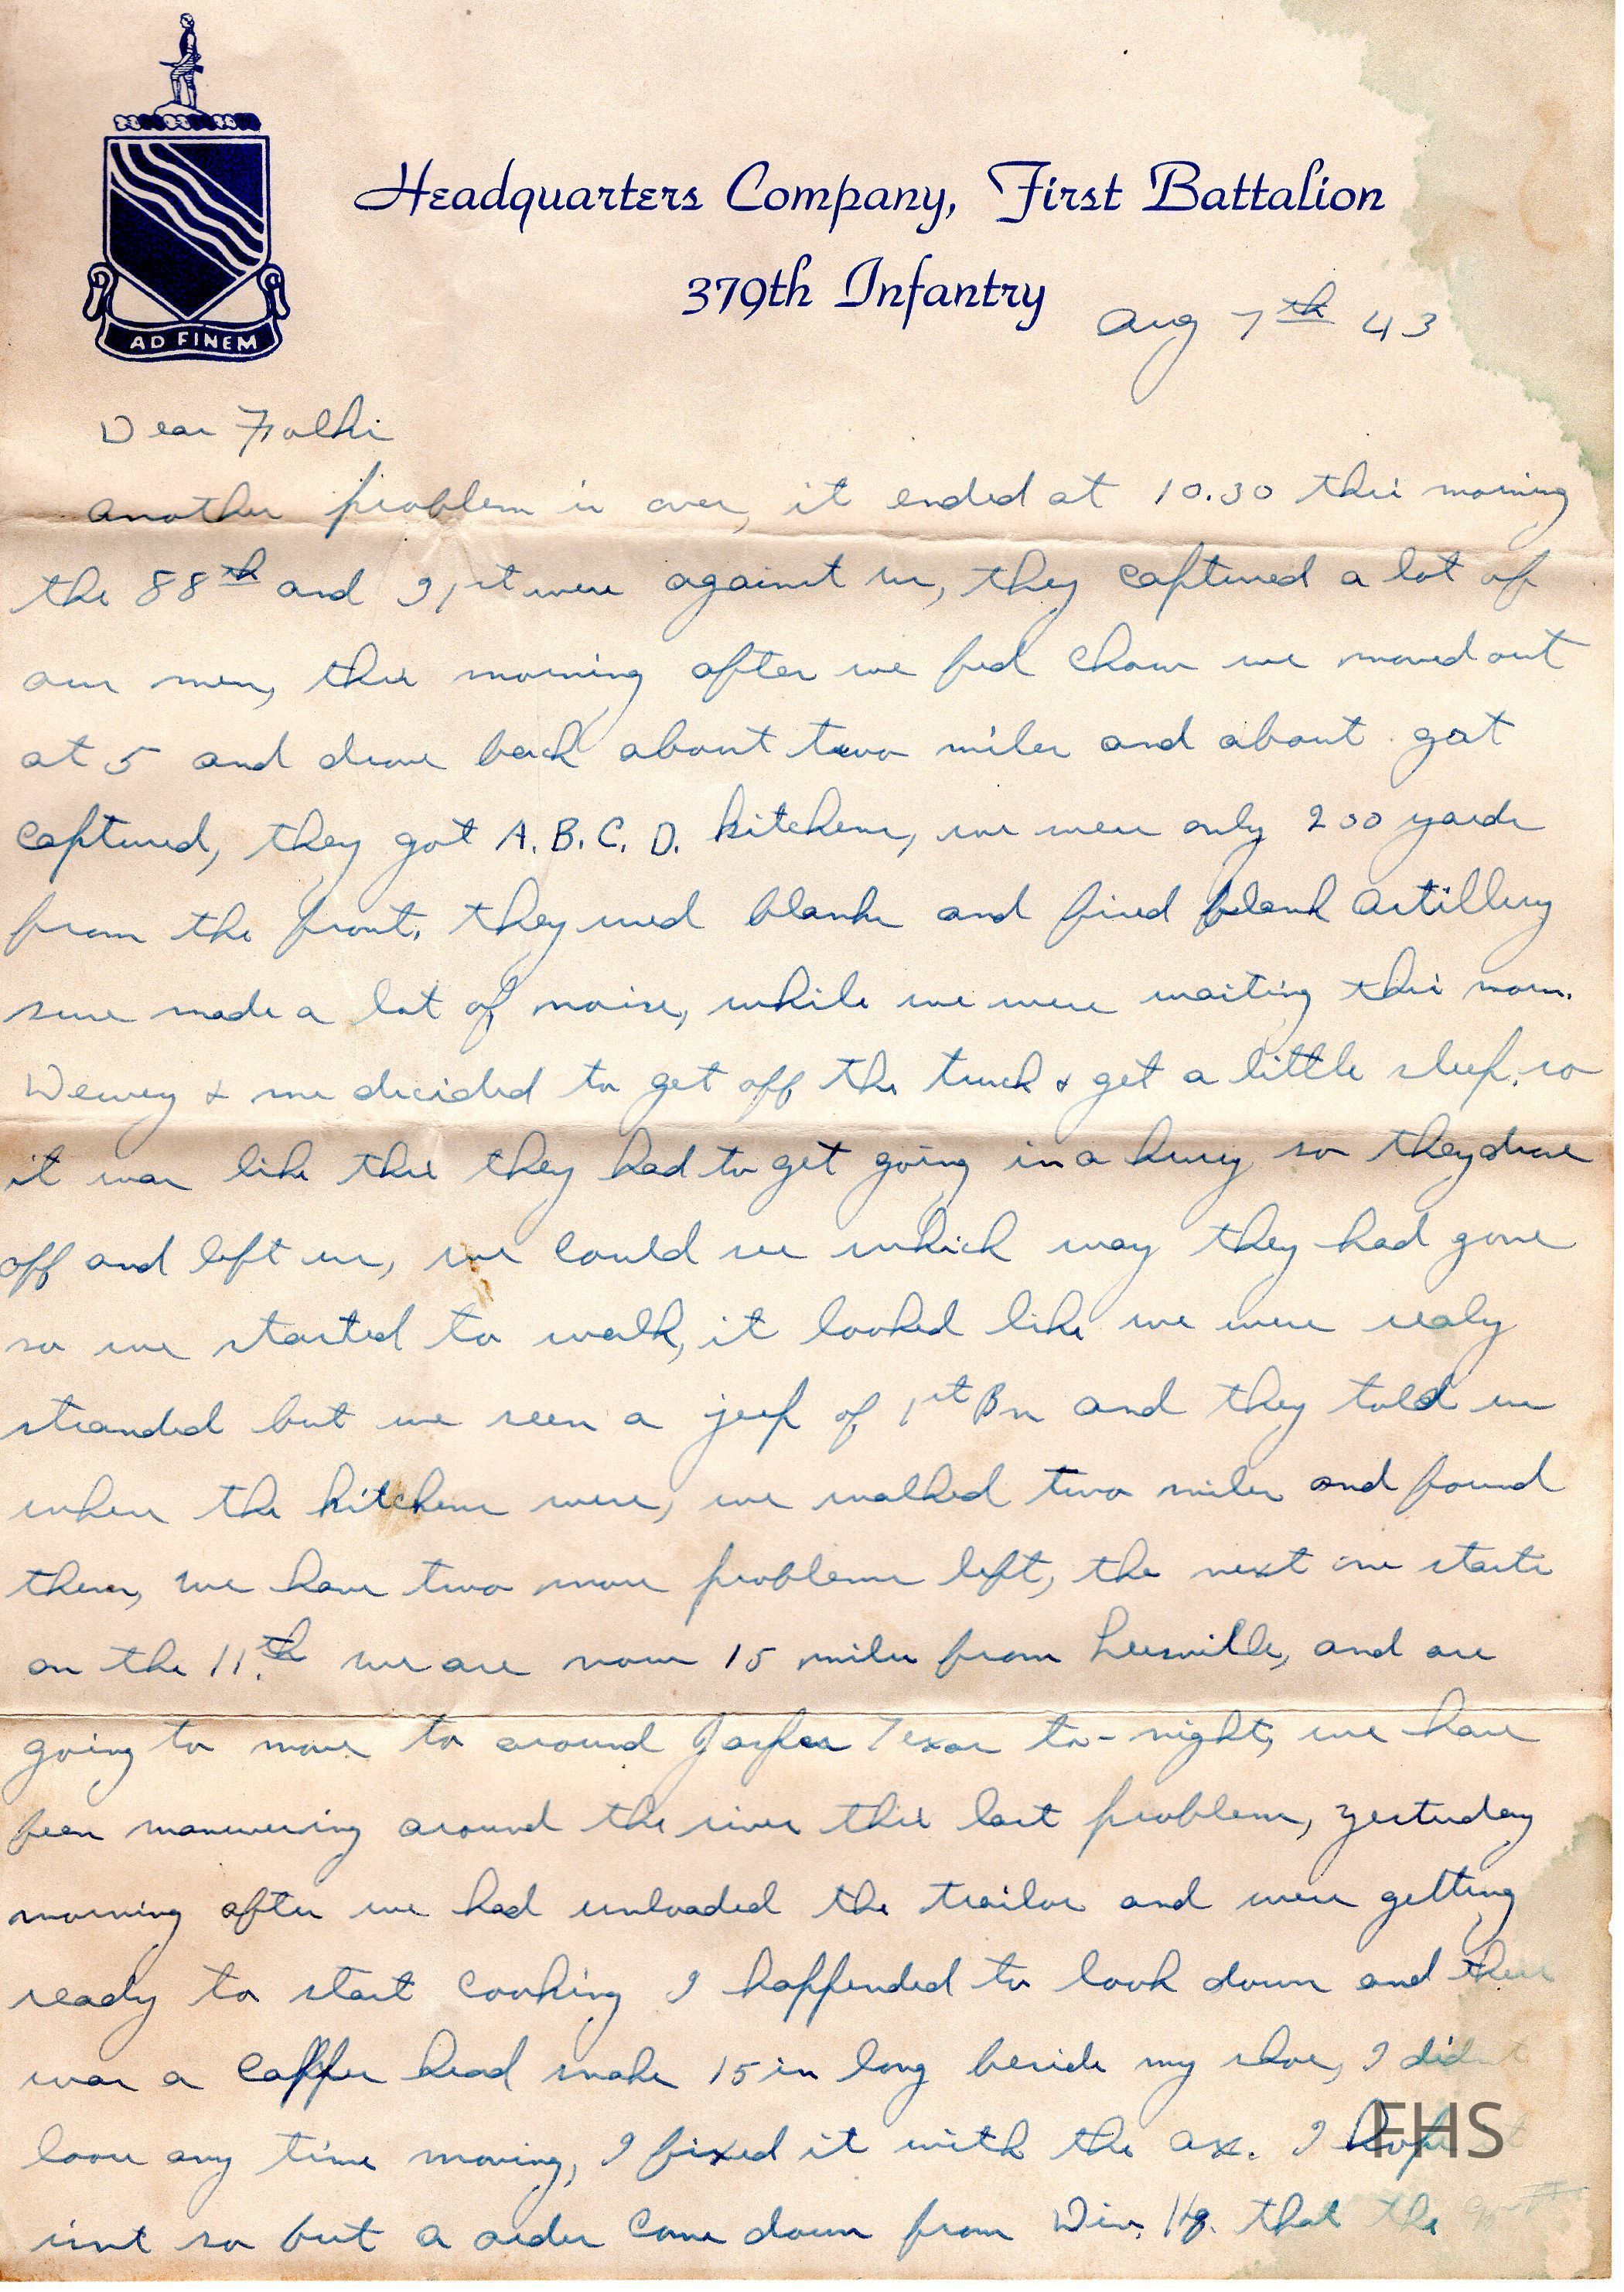 Headquarters Company, First Battalion
379th Infantry
AD FINEM
Aug 7th 43
Dear Folks
another problem is over, it ended at 10.30 this morning
the 88th and 31st were against us, they captured a lot of
our men, this morning after we fed chow we moved out
at 5 and drove back about two miles and about got
captured, they got A.B.C.D. kitchens, we were only 200 yards
from the front. they used blanks and fired blank artillery
sure made a lot of noise, while we were waiting this morn.
Dewey & me decided to get off the truck & get a little sleep, so
it was like this they had to get going in a hurry so they drove
off and left us, we could see which way they had gone
so we started to walk, it looked like we were realy
stranded but we seen a jeep of 1st Bn and they told us
where the kitchens were, we walked two miles and found
them, we have two more problems left, the next one starts
on the 11th we are now 15 miles from Leesville, and are
going to move to around Jasper Texas to-night, we have
been manuvering around the river this last problem, yesterday
morning after we had unloaded the trailor and were getting
ready to start cooking I happended to look down and there
was a copper head snake 15 in long beside my shoe, I didnt
loose any time moving, I fixed it with the ax. I hope it
isnt so but a order come down from Div. Hq. that the
FHS